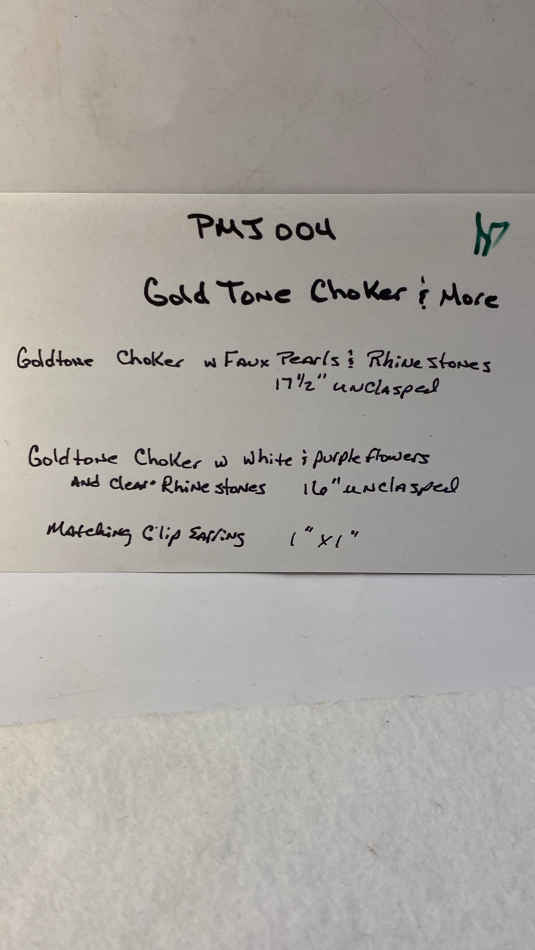 PMJ 004
Gold Tone Choker & More
Goldtone Choker w Faux Pearls & Rhinestones
17 1/2" unclasped
Goldtone Choker w white & purple flowers
And clear Rhinestones 16" unclasped
Matching Clip Earring 1" x 1"